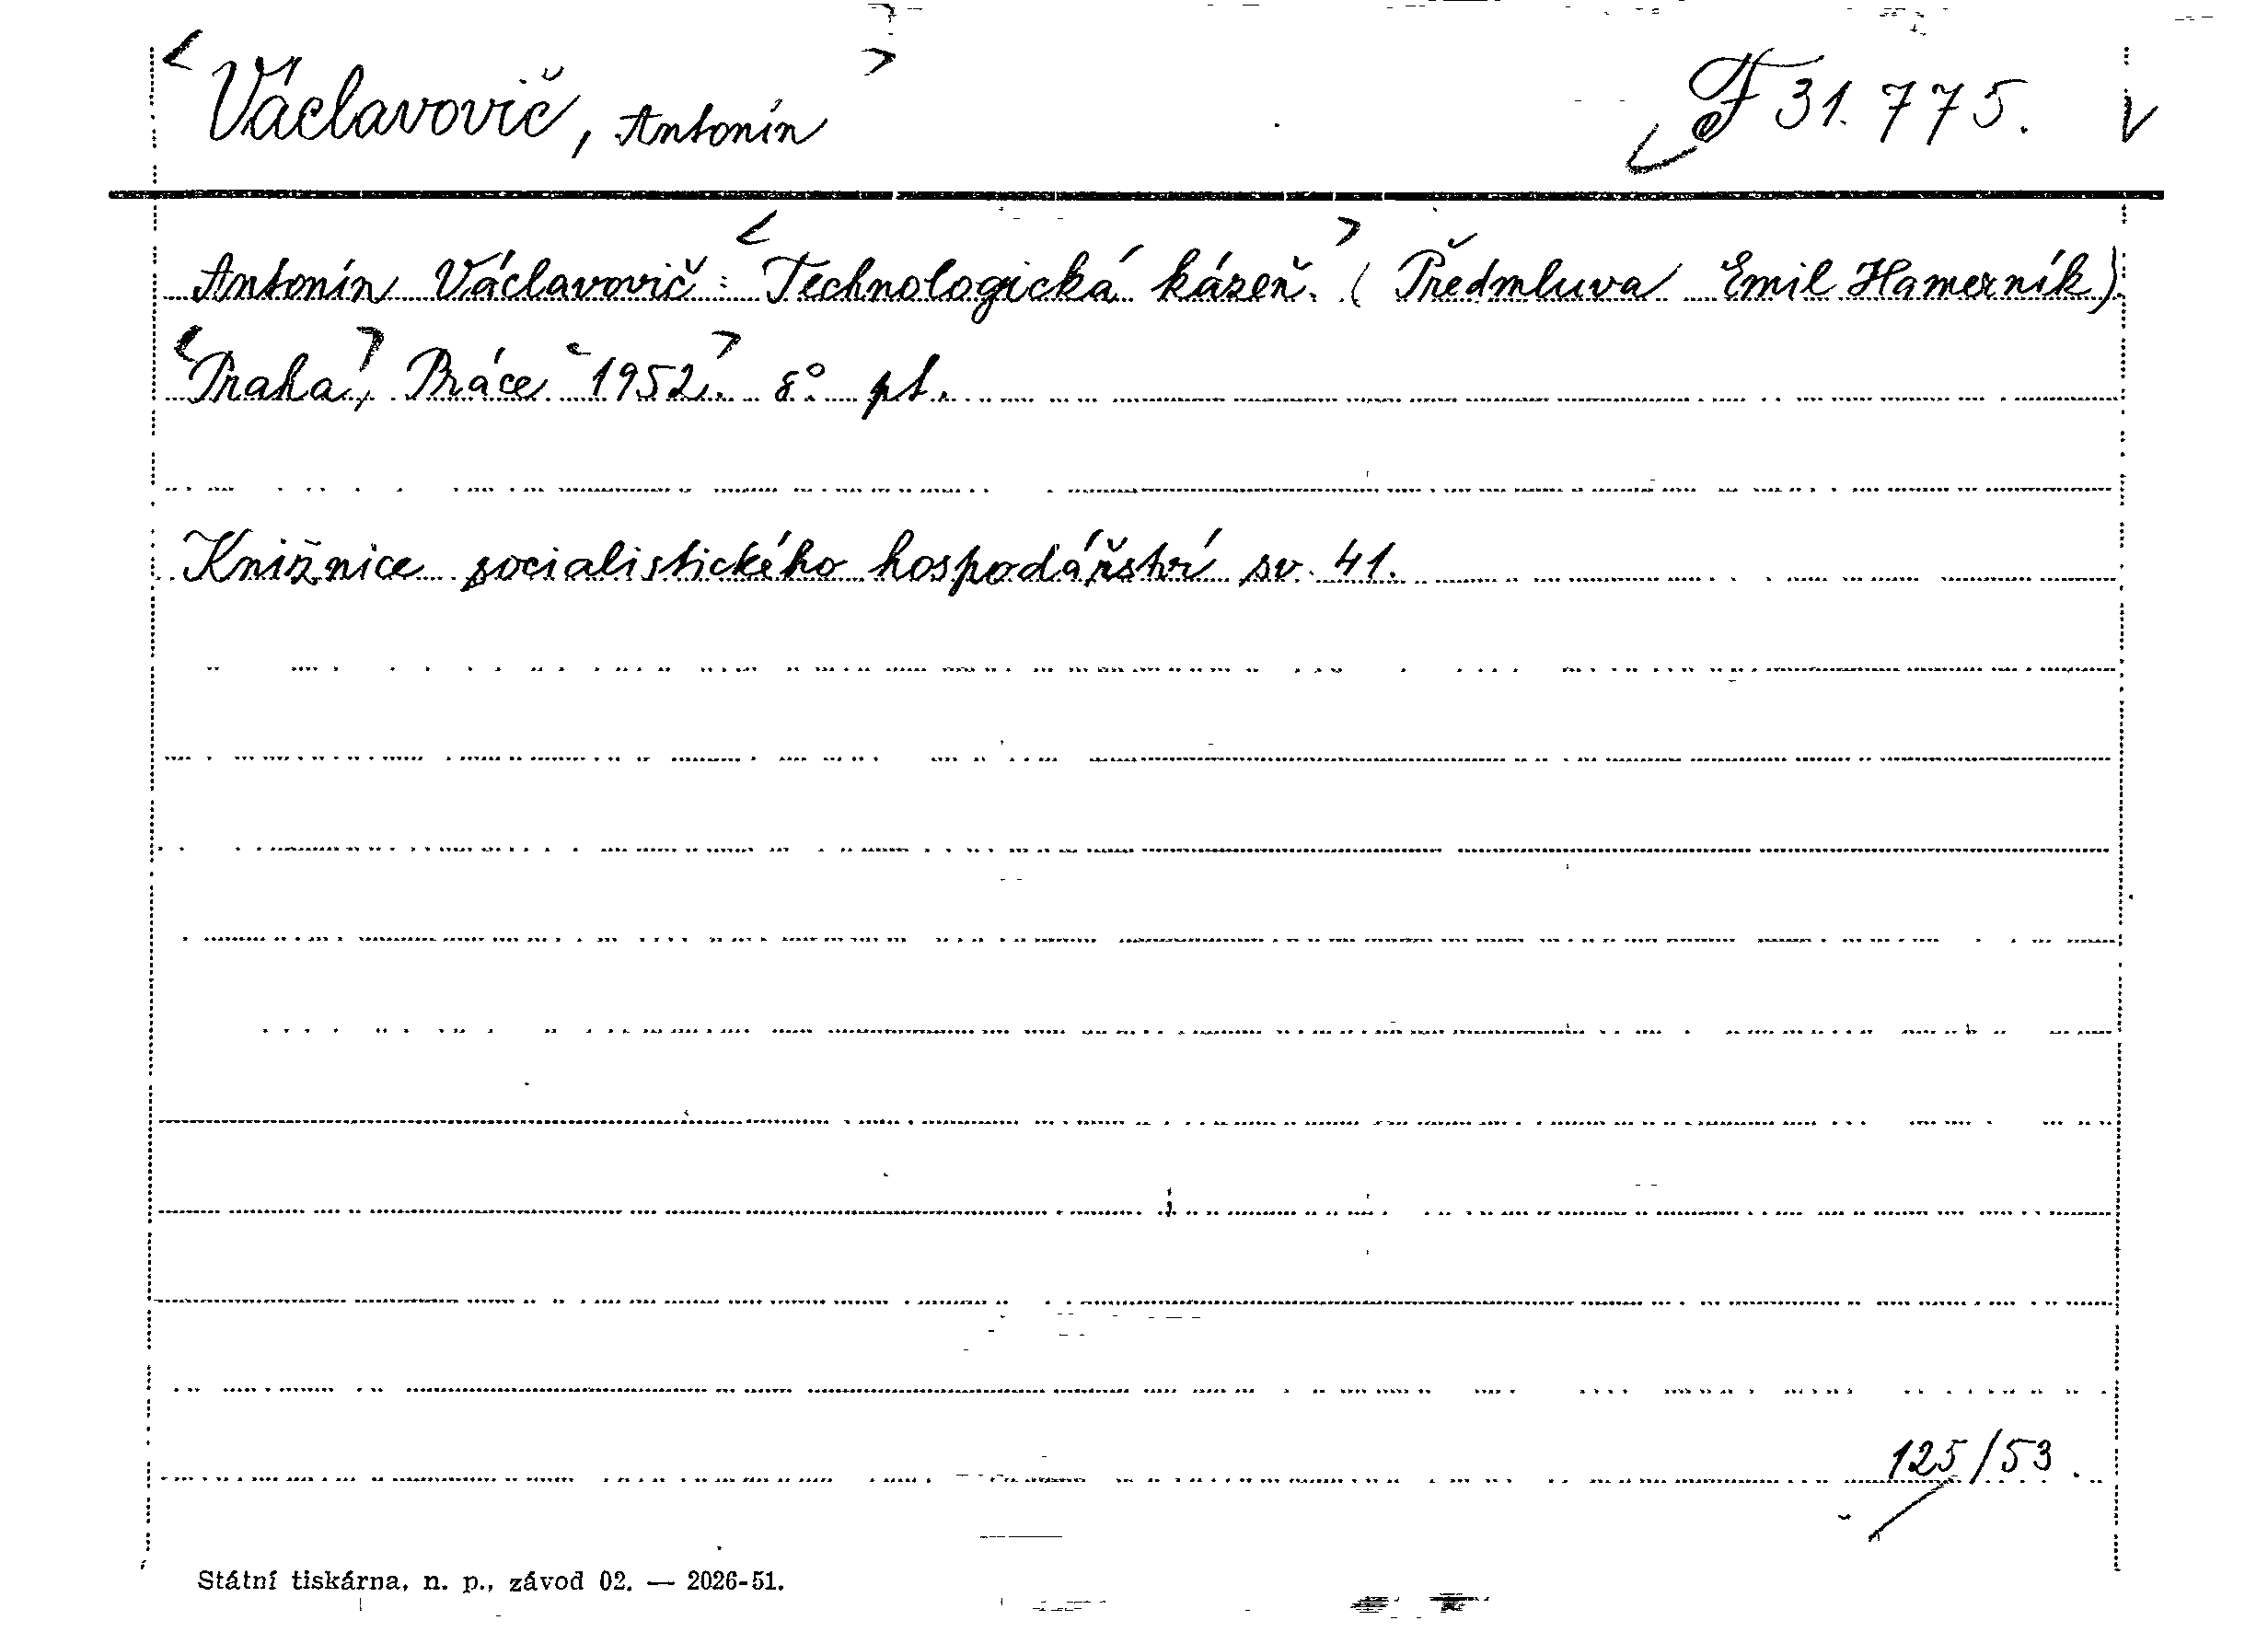 <Václavovič, Antonín> F 31.775. V
Antonín Václavovič: <Technologická kázeň.> (Předmluva Emil Hamerník)
<Praha>, Práce <1952>. 8° pt.
Knižnice socialistického hospodářství sv. 41.
125/53.
Státní tiskárna, n. p., závod 02. — 2026-51.